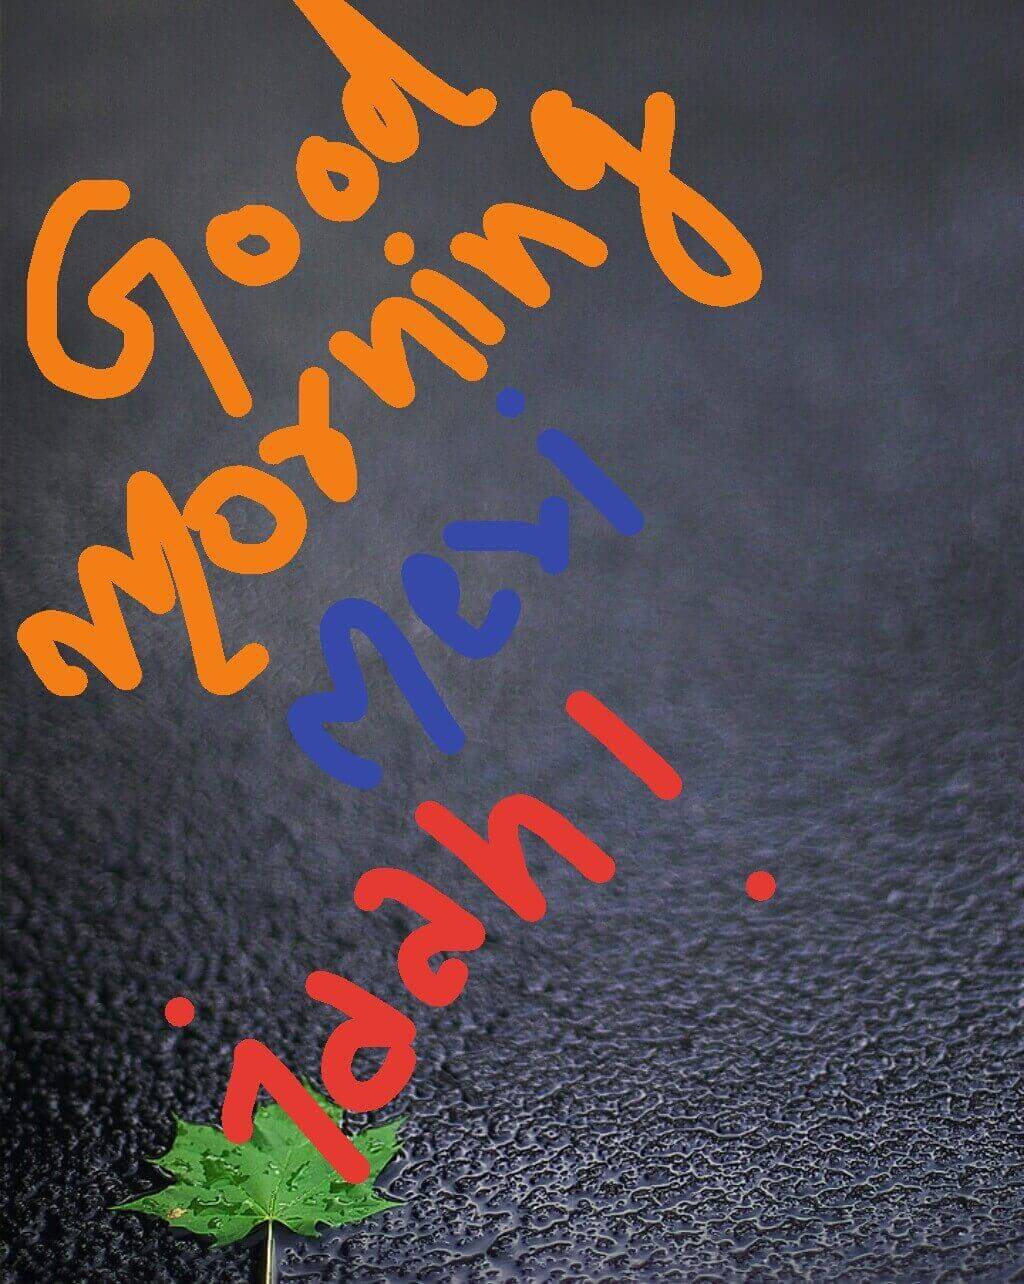 Good
Morning
Meri
jaan !